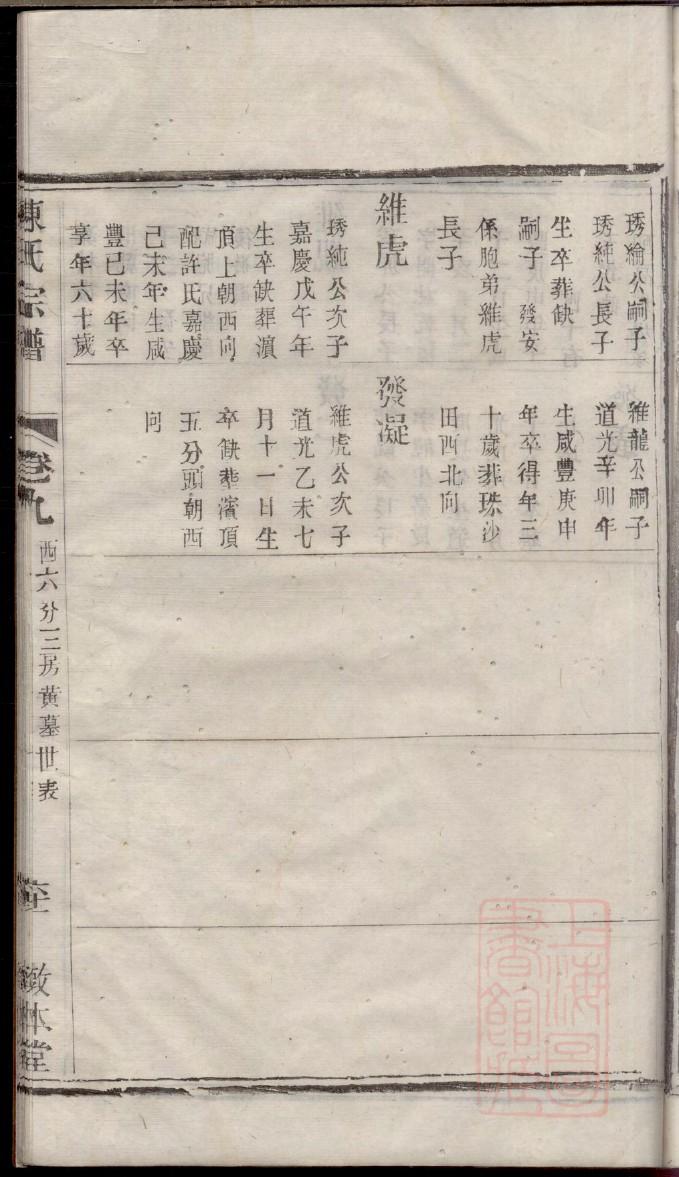 琇綸公嗣子
琇純公長子
生卒葬缺
嗣子發安
係胞弟維虎
長子
維虎
琇純公次子
嘉慶戊午年
生卒缺葬濵
頂上朝西向
配許氏嘉慶
己未年生咸
豐已未年卒
享年六十歲
維龍公嗣子
道光辛卯年
生咸豐庚申
年卒得年三
十歲葬珠沙
田西北向
發凝
維虎公次子
道光乙未七
月十一日生
卒缺葬濱頂
五分頭朝西
向
陳氏宗譜
卷九
西六分三房黃墓世表
敦本堂
上海圖書館藏